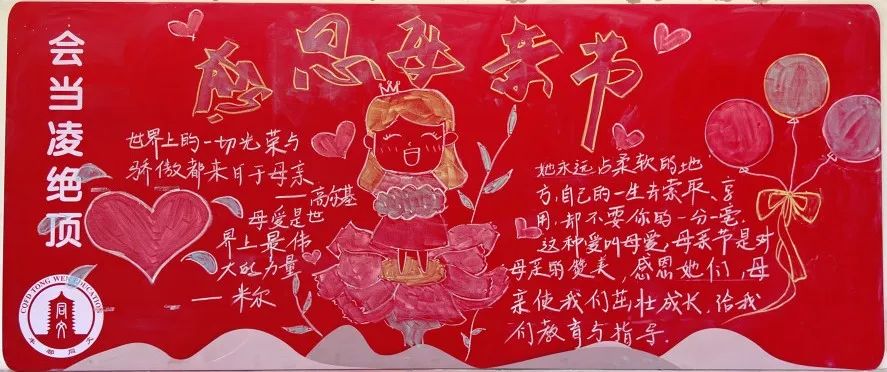 感恩母亲节
会当凌绝顶
世界上的一切光荣与
骄傲都来自于母亲
——高尔基
母爱是世
界上最伟
大的力量
——米尔
她永远占柔软的地
方,自己的一生去索取、享
用,却不要你的一分一毫.
这种爱叫母爱.母亲节是对
母亲的赞美,感恩她们,母
亲使我们茁壮成长,给我
们教育与指导.
TONG WEN EDUCATION
同文